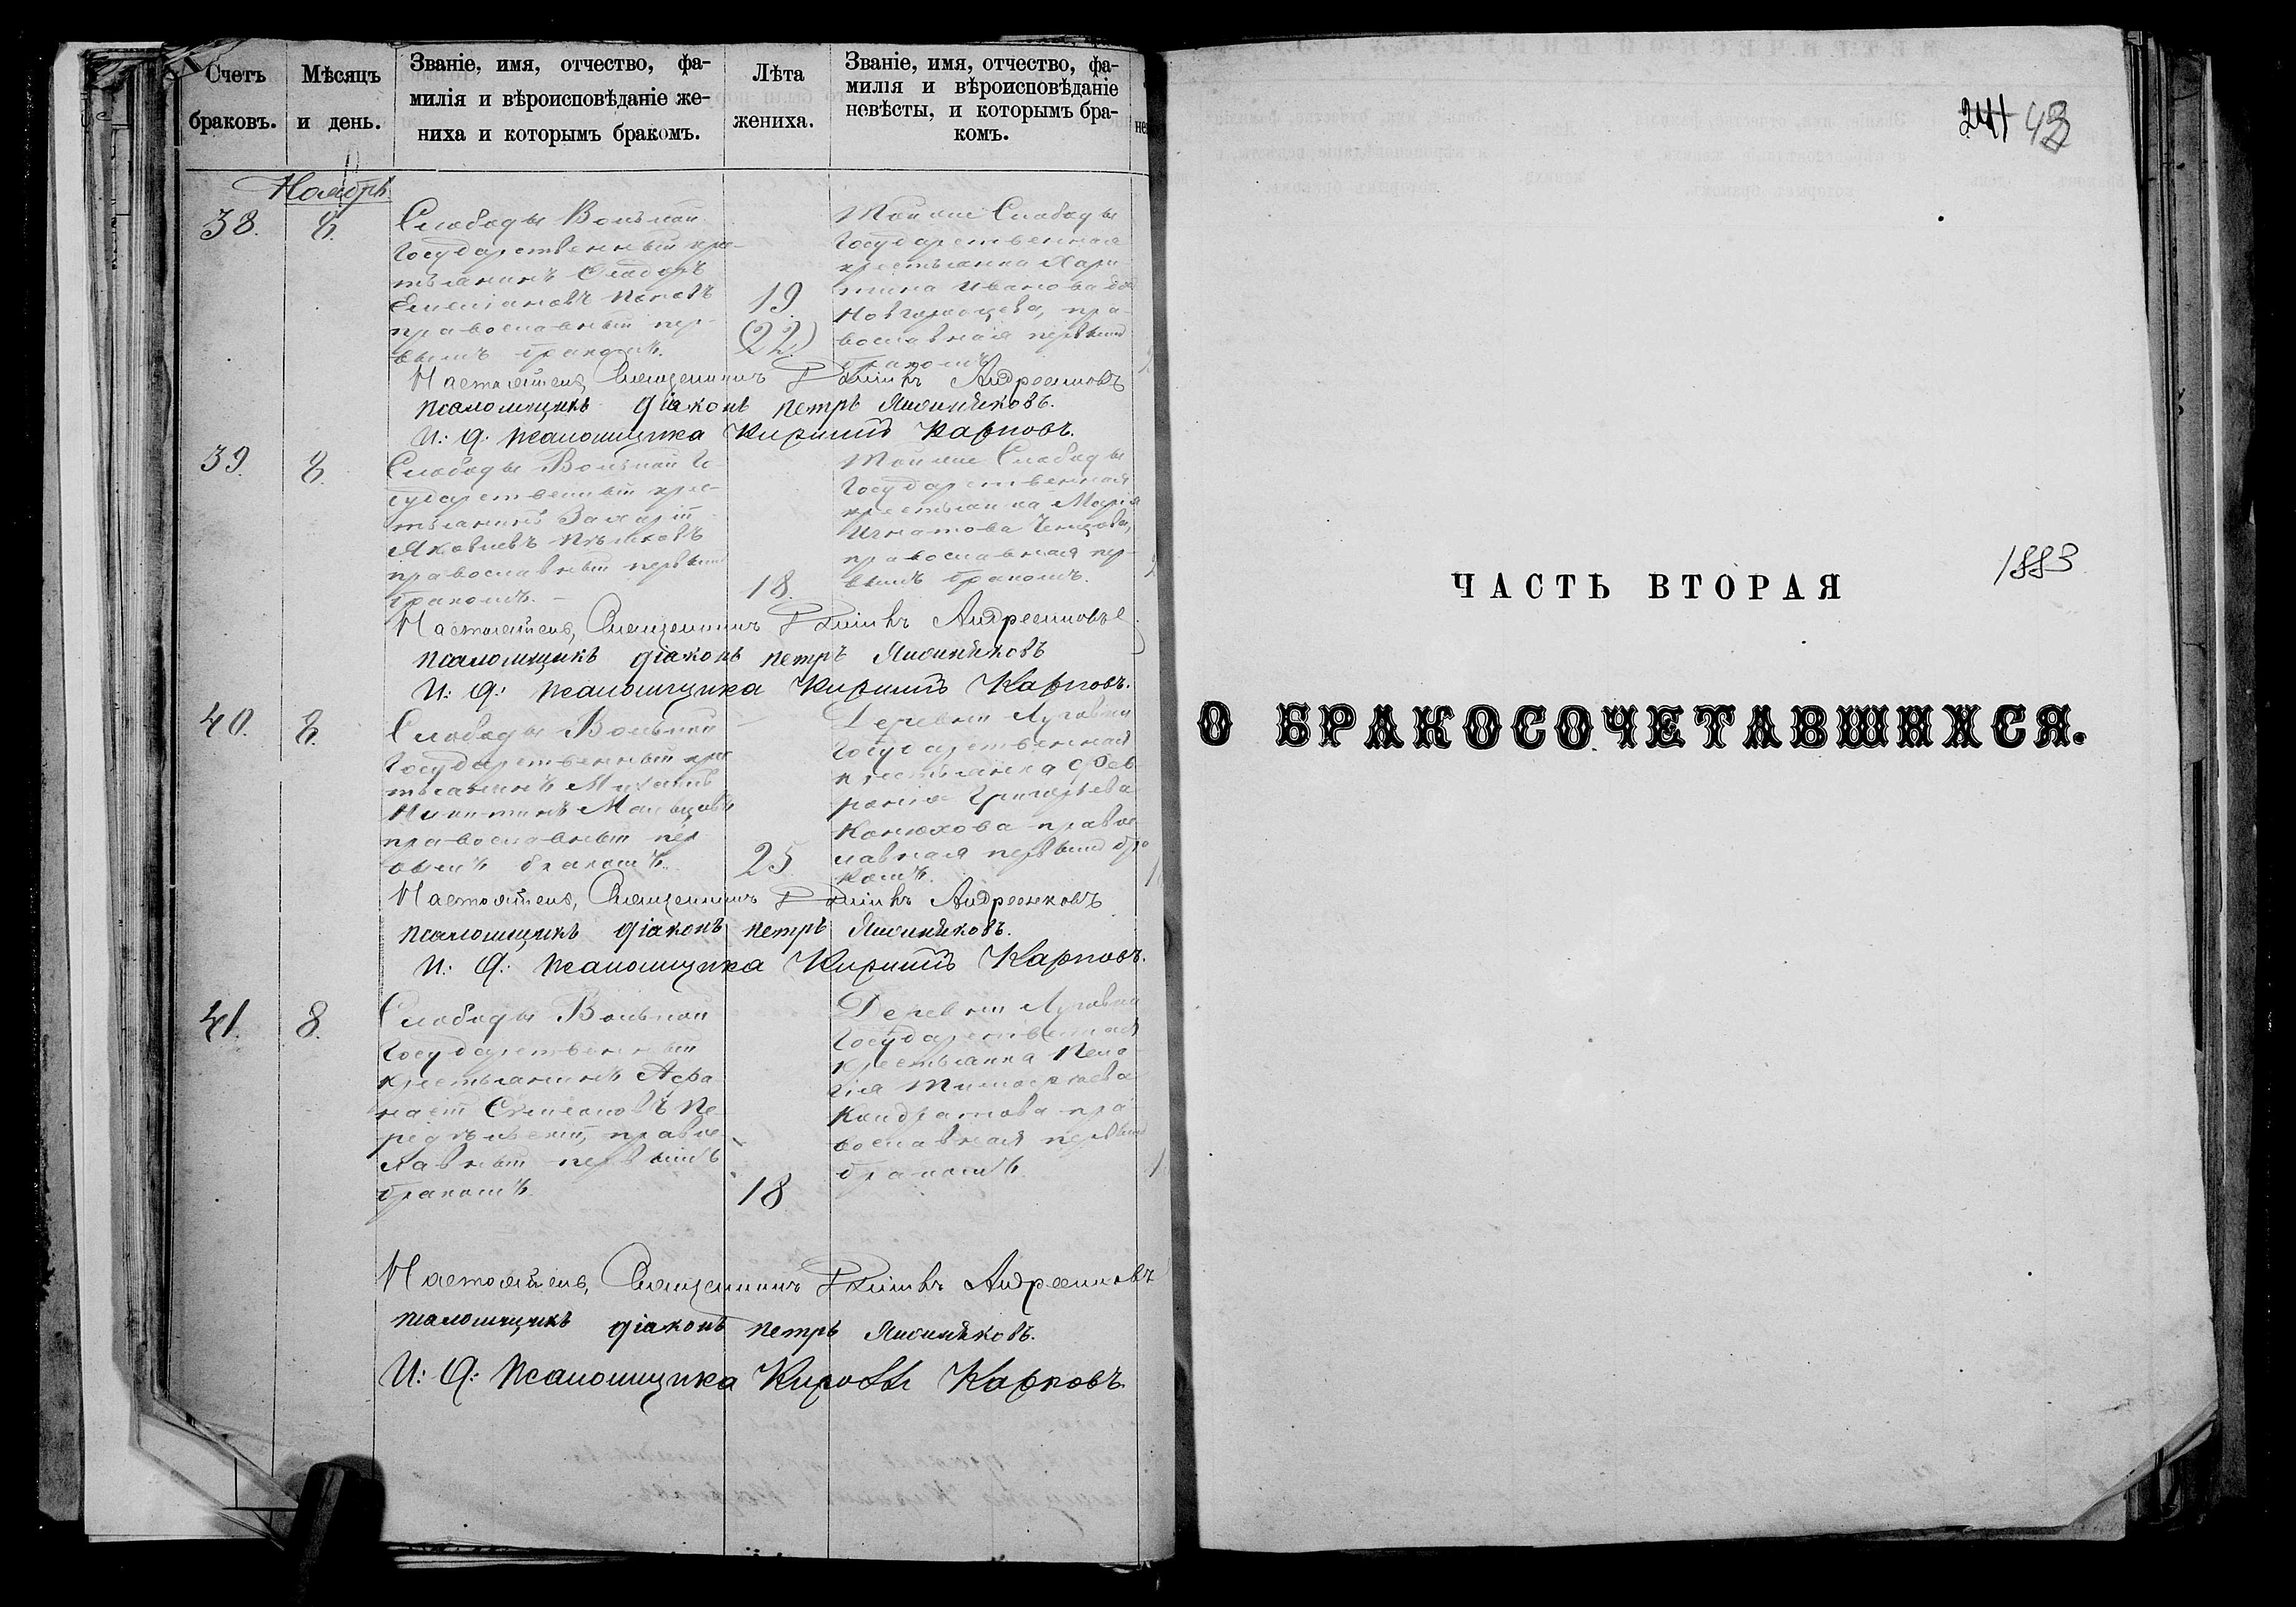 Счетъ браковъ.
Мѣсяцъ и день.
Званіе, имя, отчество, фа-
милія и вѣроисповѣданіе же-
ниха и которымъ бракомъ.
Лѣта жениха.
Званіе, имя, отчество, фа-
милія и вѣроисповѣданіе
невѣсты, и которымъ бра-
комъ.
Ноябрь
38.
8.
Слободы Вольной
Государственный кре-
стьянинъ
Емеліановъ Поповъ
православный пер-
вымъ бракомъ.
19.
(22)
Тойже Слободы
Государственная
крестьянка Хари-
тина Иванова
Новгородцева, пра-
вославная первымъ
бракомъ
Настоятель, Священникъ Андреенковъ
псаломщикъ діаконъ Петръ
И: д: псаломщика Кириллъ Карповъ.
39.
8.
Слободы Вольной Го-
сударственный кре-
стьянинъ Захарій
Яковлевъ
православный первымъ
бракомъ.
18.
Тойже Слободы
Государственная
крестьянка Марія
Игнатова
православная пер-
вымъ бракомъ.
Настоятель, Священникъ Андреенковъ
псаломщикъ діаконъ Петръ
И: д: псаломщика Кириллъ Карповъ.
40.
8.
Слободы Вольной
Государственный кре
стьянинъ Михаилъ
Никитинъ Мальцовъ
православный пер
вымъ бракомъ.
25.
Деревни Луговой
Государственная
крестьянка Фев
ронія Григорьева
Конюхова правос
лавная первымъ бра
комъ.
Настоятель, Священникъ Андреенковъ
псаломщикъ діаконъ Петръ
И: д: псаломщика Кириллъ Карповъ.
41.
8.
Слободы Вольной
Государственный
крестьянинъ Афа
насій Симеоновъ Пе
редѣльскій, правос
лавный первымъ
бракомъ
18
Деревни Луговой
Государственная
крестьянка Пела
гія Тимофеева
Кондратова пра
вославная первымъ
бракомъ.
Настоятель, Священникъ Андреенковъ
псаломщикъ діаконъ Петръ
И: д: псаломщика Карповъ
241 43
1883
ЧАСТЬ ВТОРАЯ
О БРАКОСОЧЕТАВШИХСЯ.